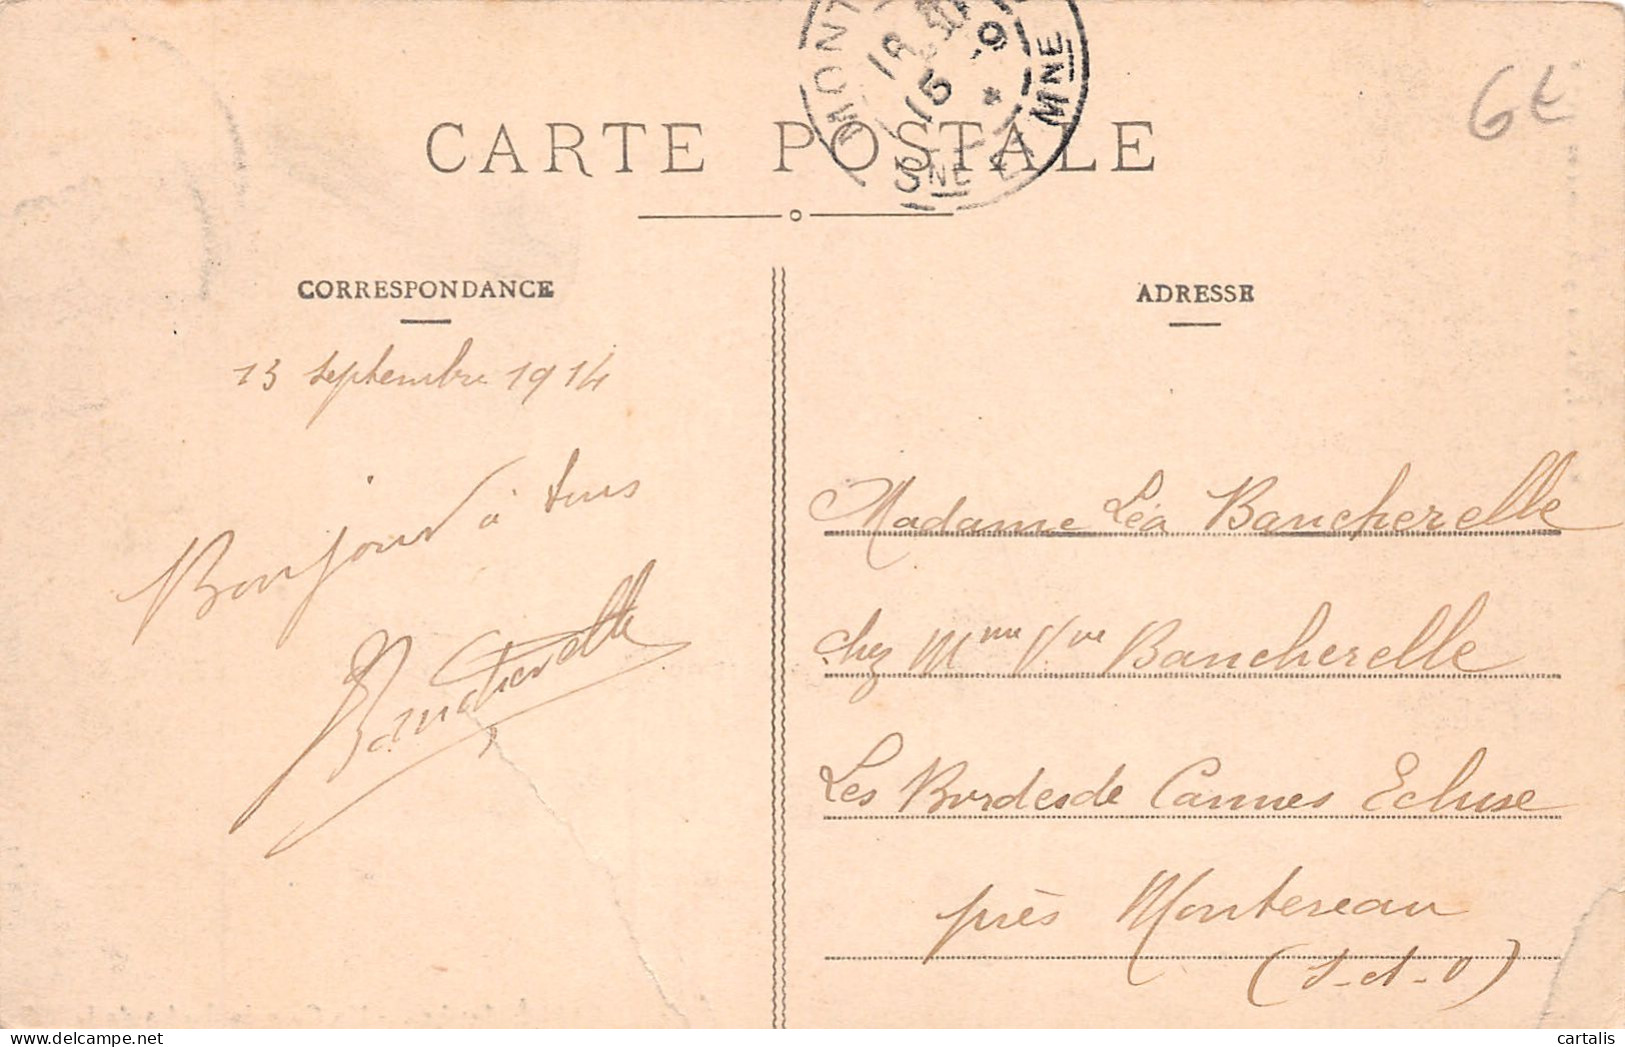 CARTE POSTALE
MONT
18 30
15 -9
SNE ET MNE
6€
CORRESPONDANCE
13 septembre 1914
Bonjour à tous
Bancherelle
ADRESSE
Madame Léa Bancherelle
chez Mme Vve Bancherelle
Les Bordes de Cannes Ecluse
près Montereau
(S-et-O)
cartalis